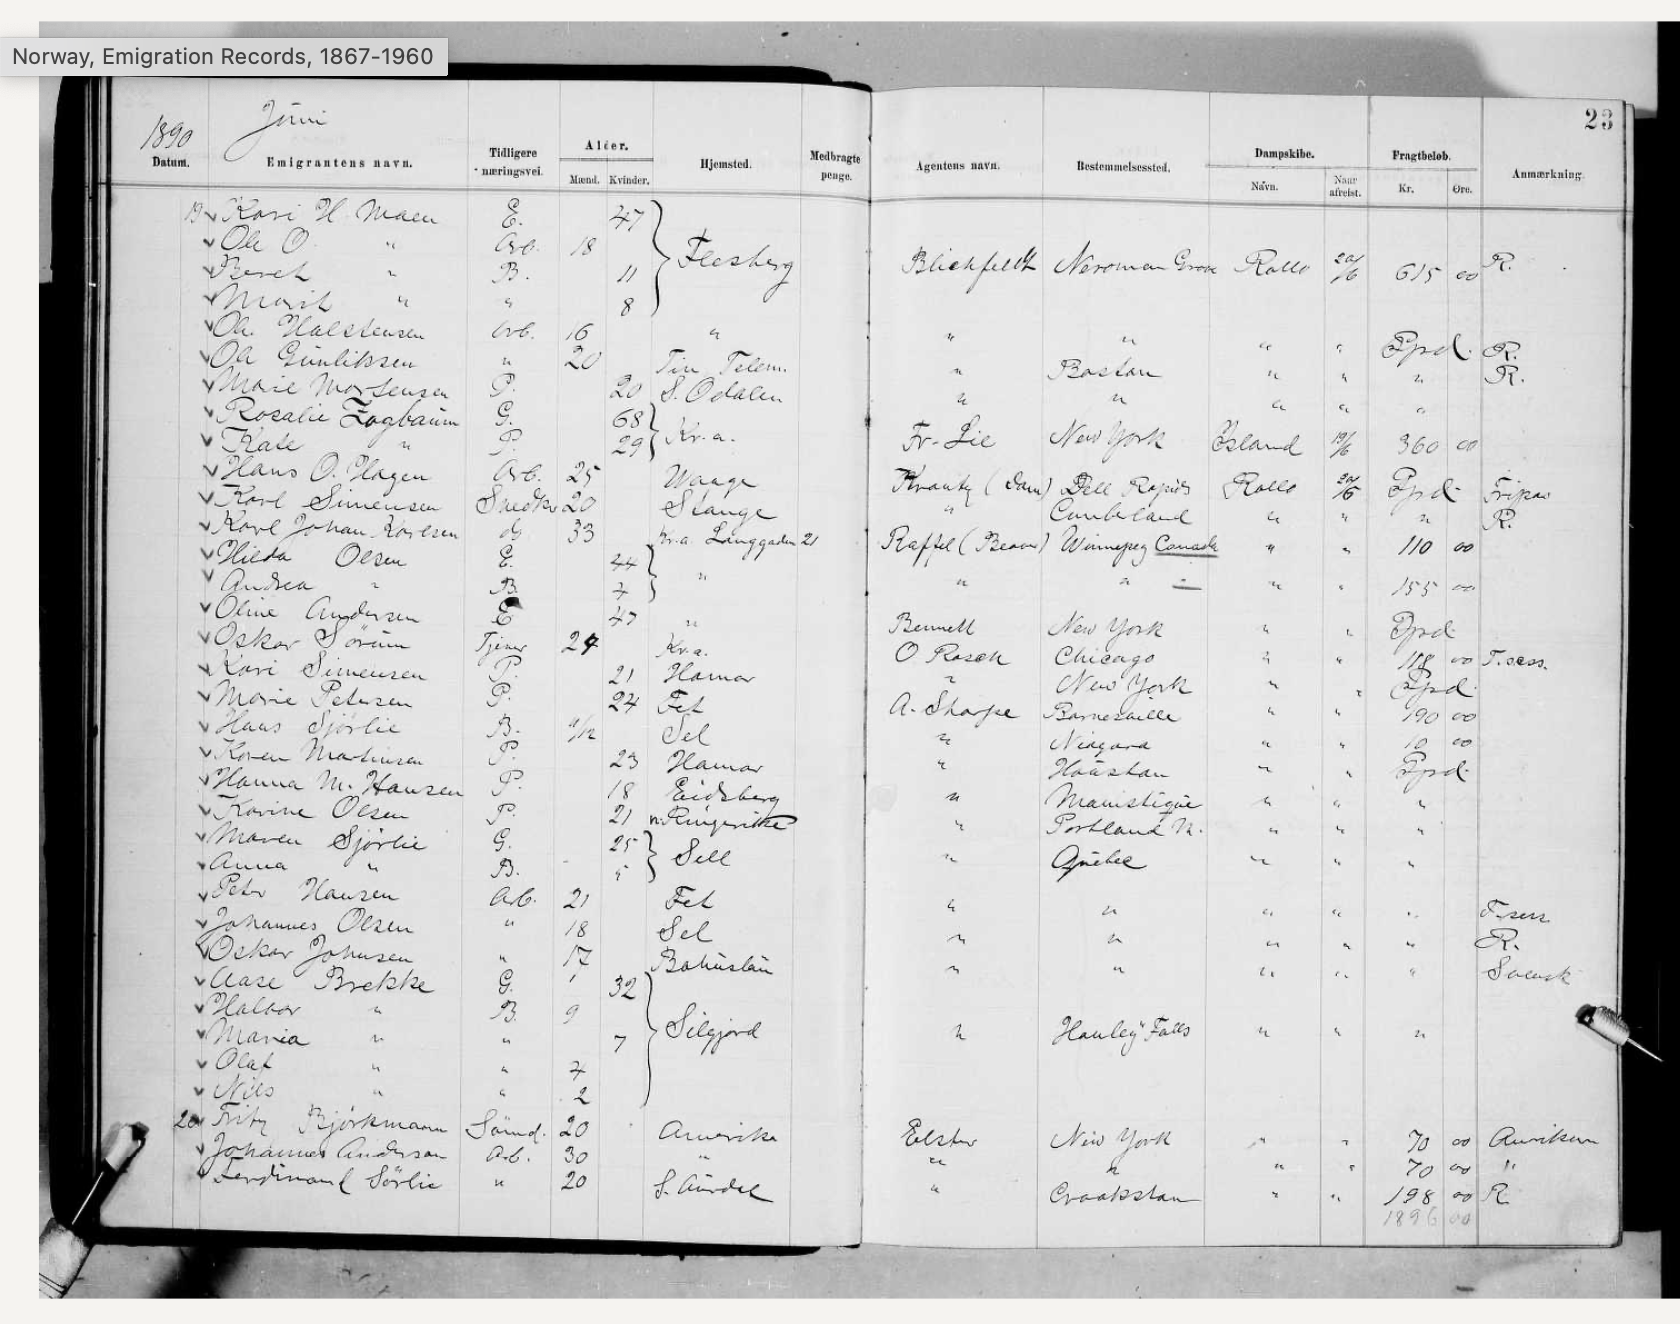 Norway, Emigration Records, 1867-1960
23
1890 Juni
Datum. Emigrantens navn. Tidligere næringsvei. Alder. Mænd. Kvinder. Hjemsted. Medbragte penge. Agentens navn. Bestemmelsessted. Dampskibe. Navn. Naar afreist. Fragtbeløb. Kr. Øre. Anmærkning.
19 Kari H. Moen E. 47
Ole O. " Arb. 18 Flesberg Blichfeldt Grove Rollo 20/6 615 00 R.
Beret " B. 11
Marit " " 8
Ole Halstensen Arb. 16 " " " " " Pprd. R.
Ole Gunliksen " 20 Tin Telem. " Boston " " " R.
Marie Mortensen P. 20 S. Odalen " " " " "
Rosalie G. 68
Kate " P. 29 Kr.a. Fr. Lie New York Island 19/6 360 00
Hans O. Hagen Arb. 25 Waage (Dom) Dell Rapids Rollo 20/6 Pprd.
Karl Simensen 20 Stange " Cumberland " " " R.
Karl Johan Karlsen do 33 Kr.a. Langgaden 21 Raffel (Beaver) Winnipeg Canada " " 110 00
Hilda Olsen E. 44
Andrea " B. 7 " " " " " " 155 00
Oline Andersen E 47 " Bennett New York " " Pprd.
Oskar Sørum Tjener 24 Kr.a. O Rosch Chicago " " 118 00
Kari Simensen P. 21 Hamar " New York " " Pprd.
Marie Petersen P. 24 Fet A. Sharpe Barnesville " " 190 00
Hans Sjørlie B. 11/12 Sel " Niagara " " 10 00
Karen Martinsen P. 23 Hamar " Houston " " Pprd.
Hanna M. Hansen P. 18 Eidsberg " Manistique " " "
Karine Olsen P. 21 Ringerike " Portland " " "
Maren Sjørlie G. 25
Anna " B. 5 Sell " Quebec " " "
Peter Hansen Arb. 21 Fet " " " " "
Johannes Olsen " 18 Sel " " " " " R.
Oskar Johnsen " 17 Bohuslän " " " " " Svensk
Aase Brekke G. 32
Halvor " B. 9
Maria " " 7 Silgjord " Hanley Falls " " "
Olaf " " 4
Nils " " 2
20 Fritz Bjørkmann Sømd. 20 Amerika Elster New York " " 70 00
Johannes Anderson Arb. 30 " " " " " 70 00 "
Ferdinand Sørlie " 20 S. Aurdal " Crookston " " 198 00 R
1896 00